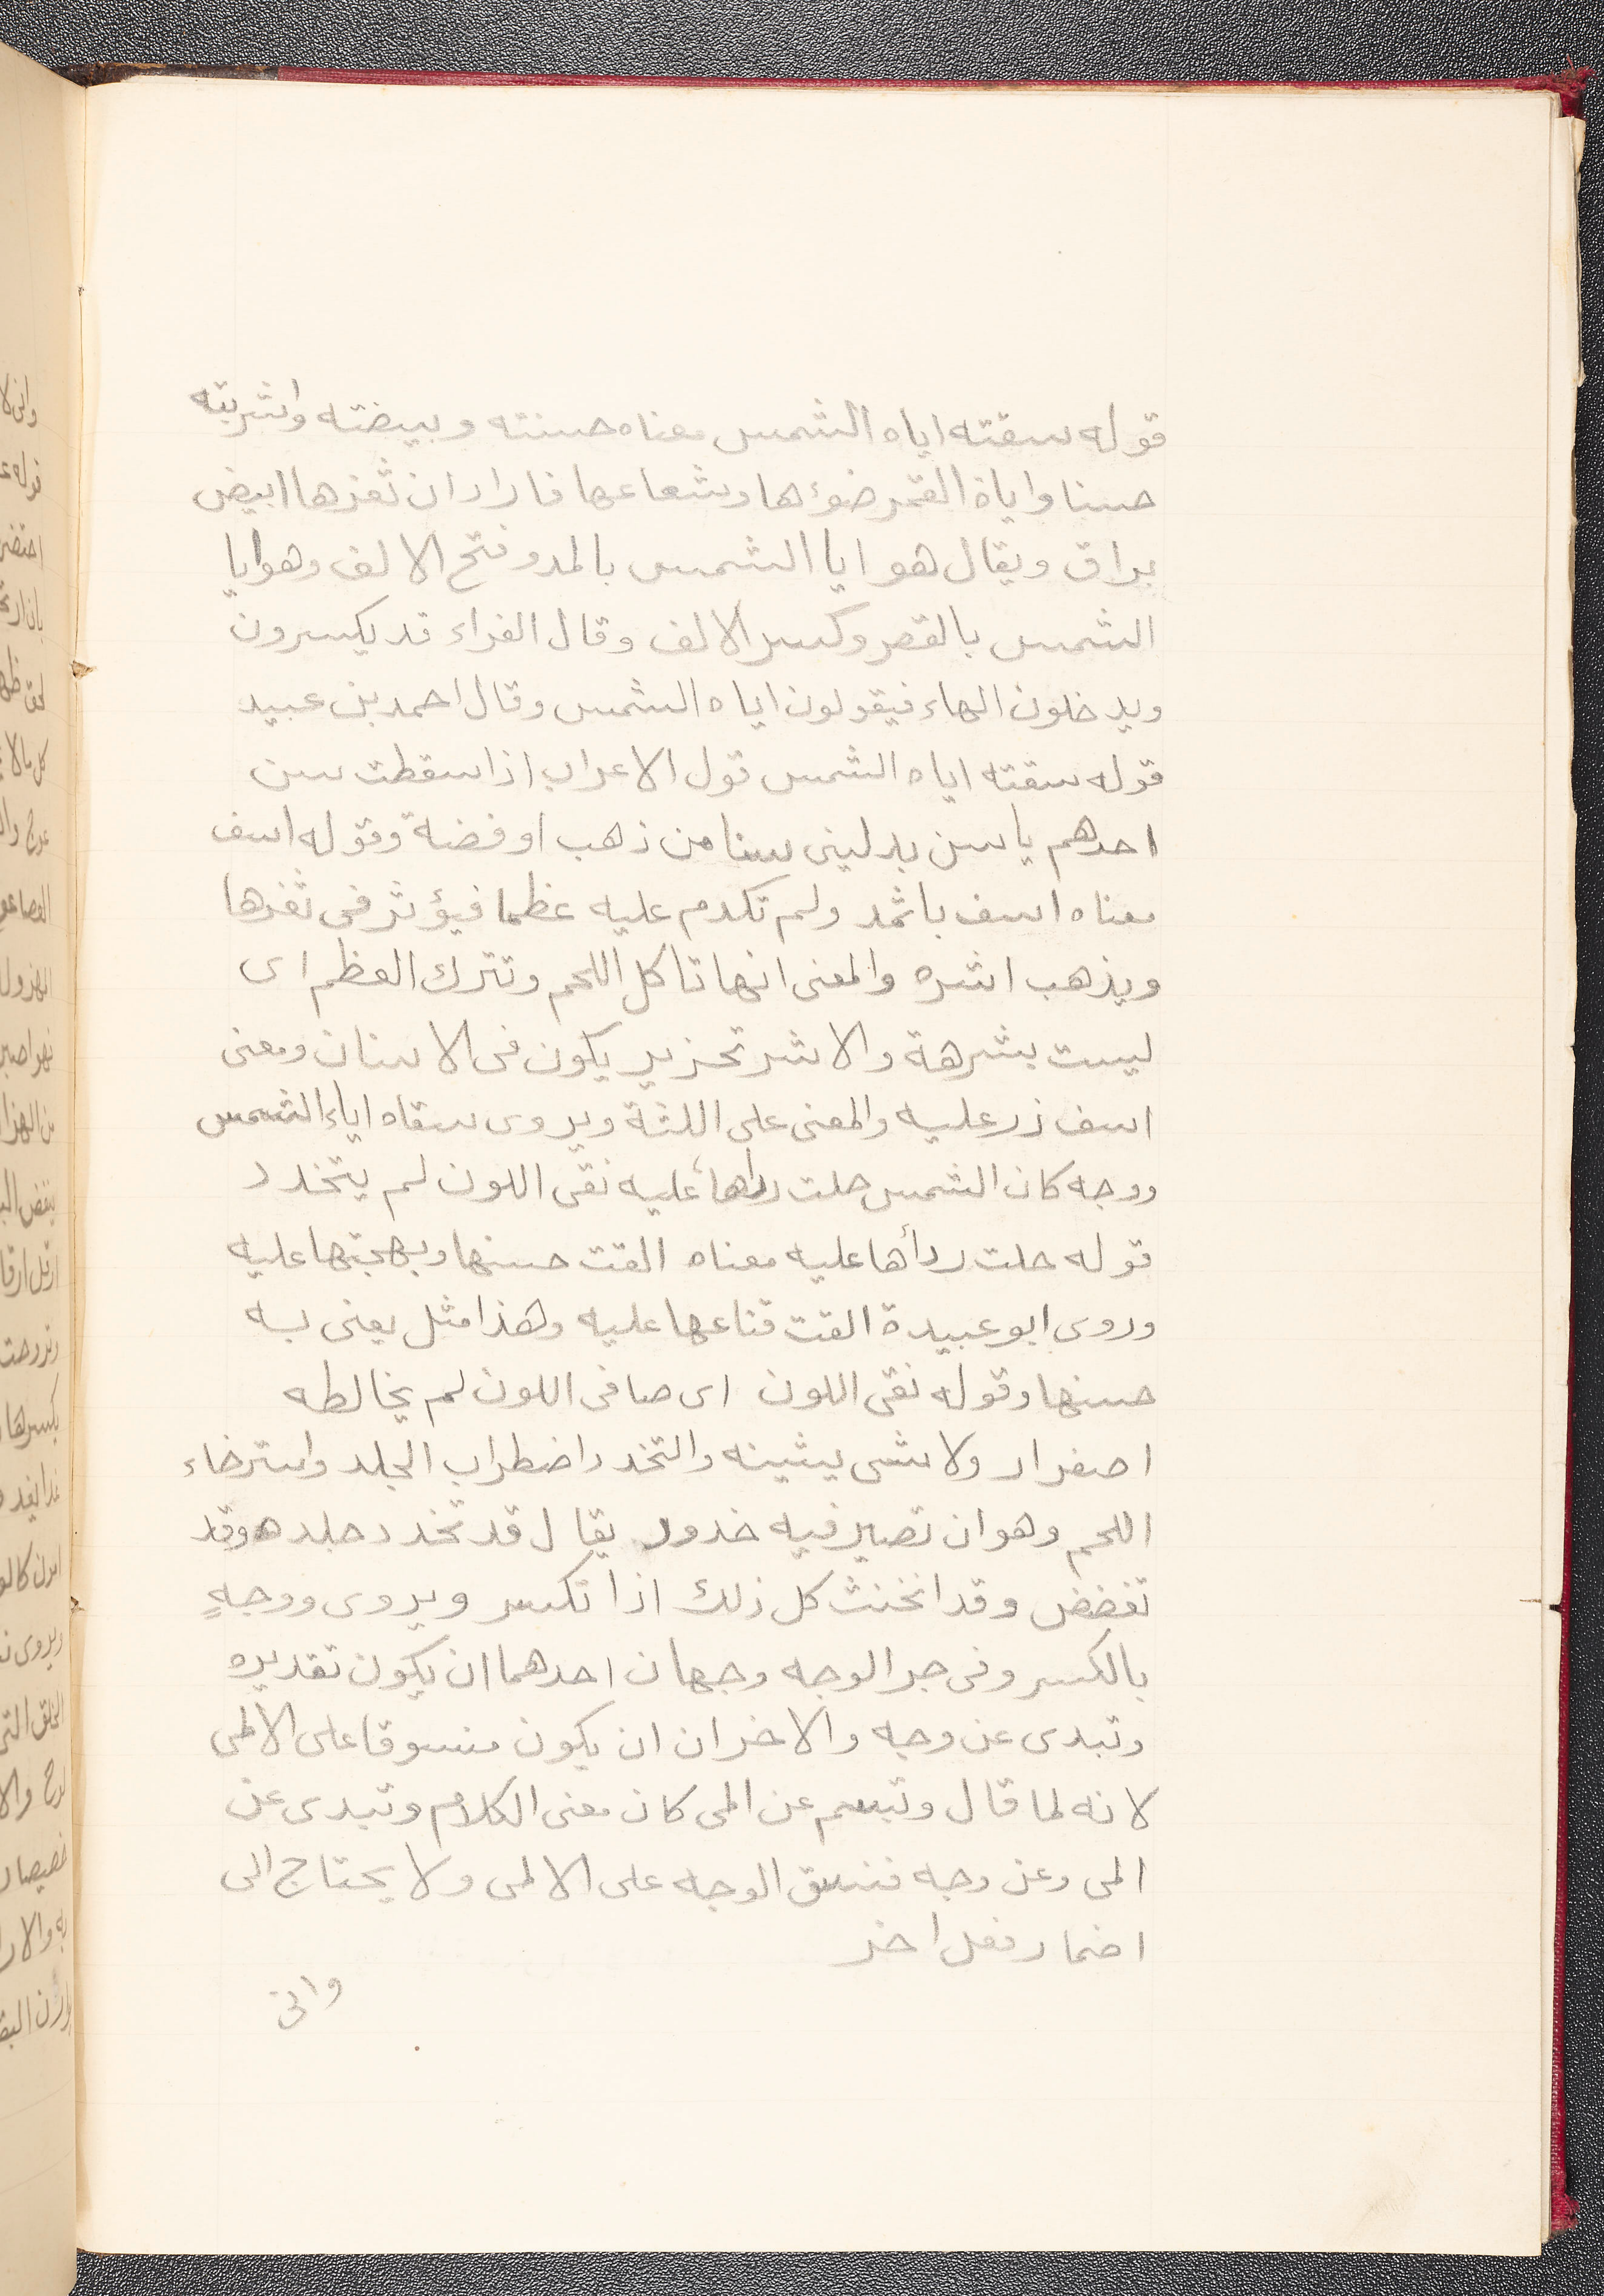 قوله سقته اياه الشمس معناه حسنته وبيضته واشربته
حسنا واياة القمر ضوءها وشعاعها فاراد ان ثغرها ابيض
براق ويقال هو ايا الشمس بالمد وفتح الالف وهو ايا
الشمس بالقصر وكسر الالف وقال الفراء قد يكسرون
ويدخلون الهاء فيقولون اياه الشمس وقال احمد بن عبيد
قوله سقته اياه الشمس قول الاعراب اذا سقطت سن
احدهم ياسن بدليني سنا من ذهب او فضة وقوله اسف
معناه اسف باثمد ولم تكدم عليه عظما فيؤثر في ثغرها
ويذهب اشره والمعنى انها تاكل اللحم وتترك العظم اى
ليست بشرهة والاشر تحزيز يكون فى الاسنان ومعنى
اسف ذر عليه والمعنى على اللثة ويروى سقاه اياء الشمس
ووجه كان الشمس حلت رداها عليه نقى اللون لم يتخدد
قوله حلت ردأها عليه معناه القت حسنها وبهجتها عليه
وروى ابو عبيدة القت قناعها عليه وهذا مثل يعنى به
حسنها وقوله نقى اللون اى صافى اللون لم يخالطه
اصفرار ولا شى يشينه والتخدد اضطراب الجلد واسترخاء
اللحم وهو ان تصير فيه خدود يقال قد تخدد جلده وقد
تغضض وقد انخنث كل ذلك اذا تكسر ويروى ووجهٍ
بالكسر وفى جر الوجه وجهان احدهما ان يكون تقديره
وتبدى عن وجه والاخر ان ان يكون منسوقا على الالمى
لانه لما قال وتبسم عن المى كان معنى الكلام وتبدى عن
المى وعن وجه فنسق الوجه على الالمى ولا يحتاج الى
اضمار فعل اخر
وانى